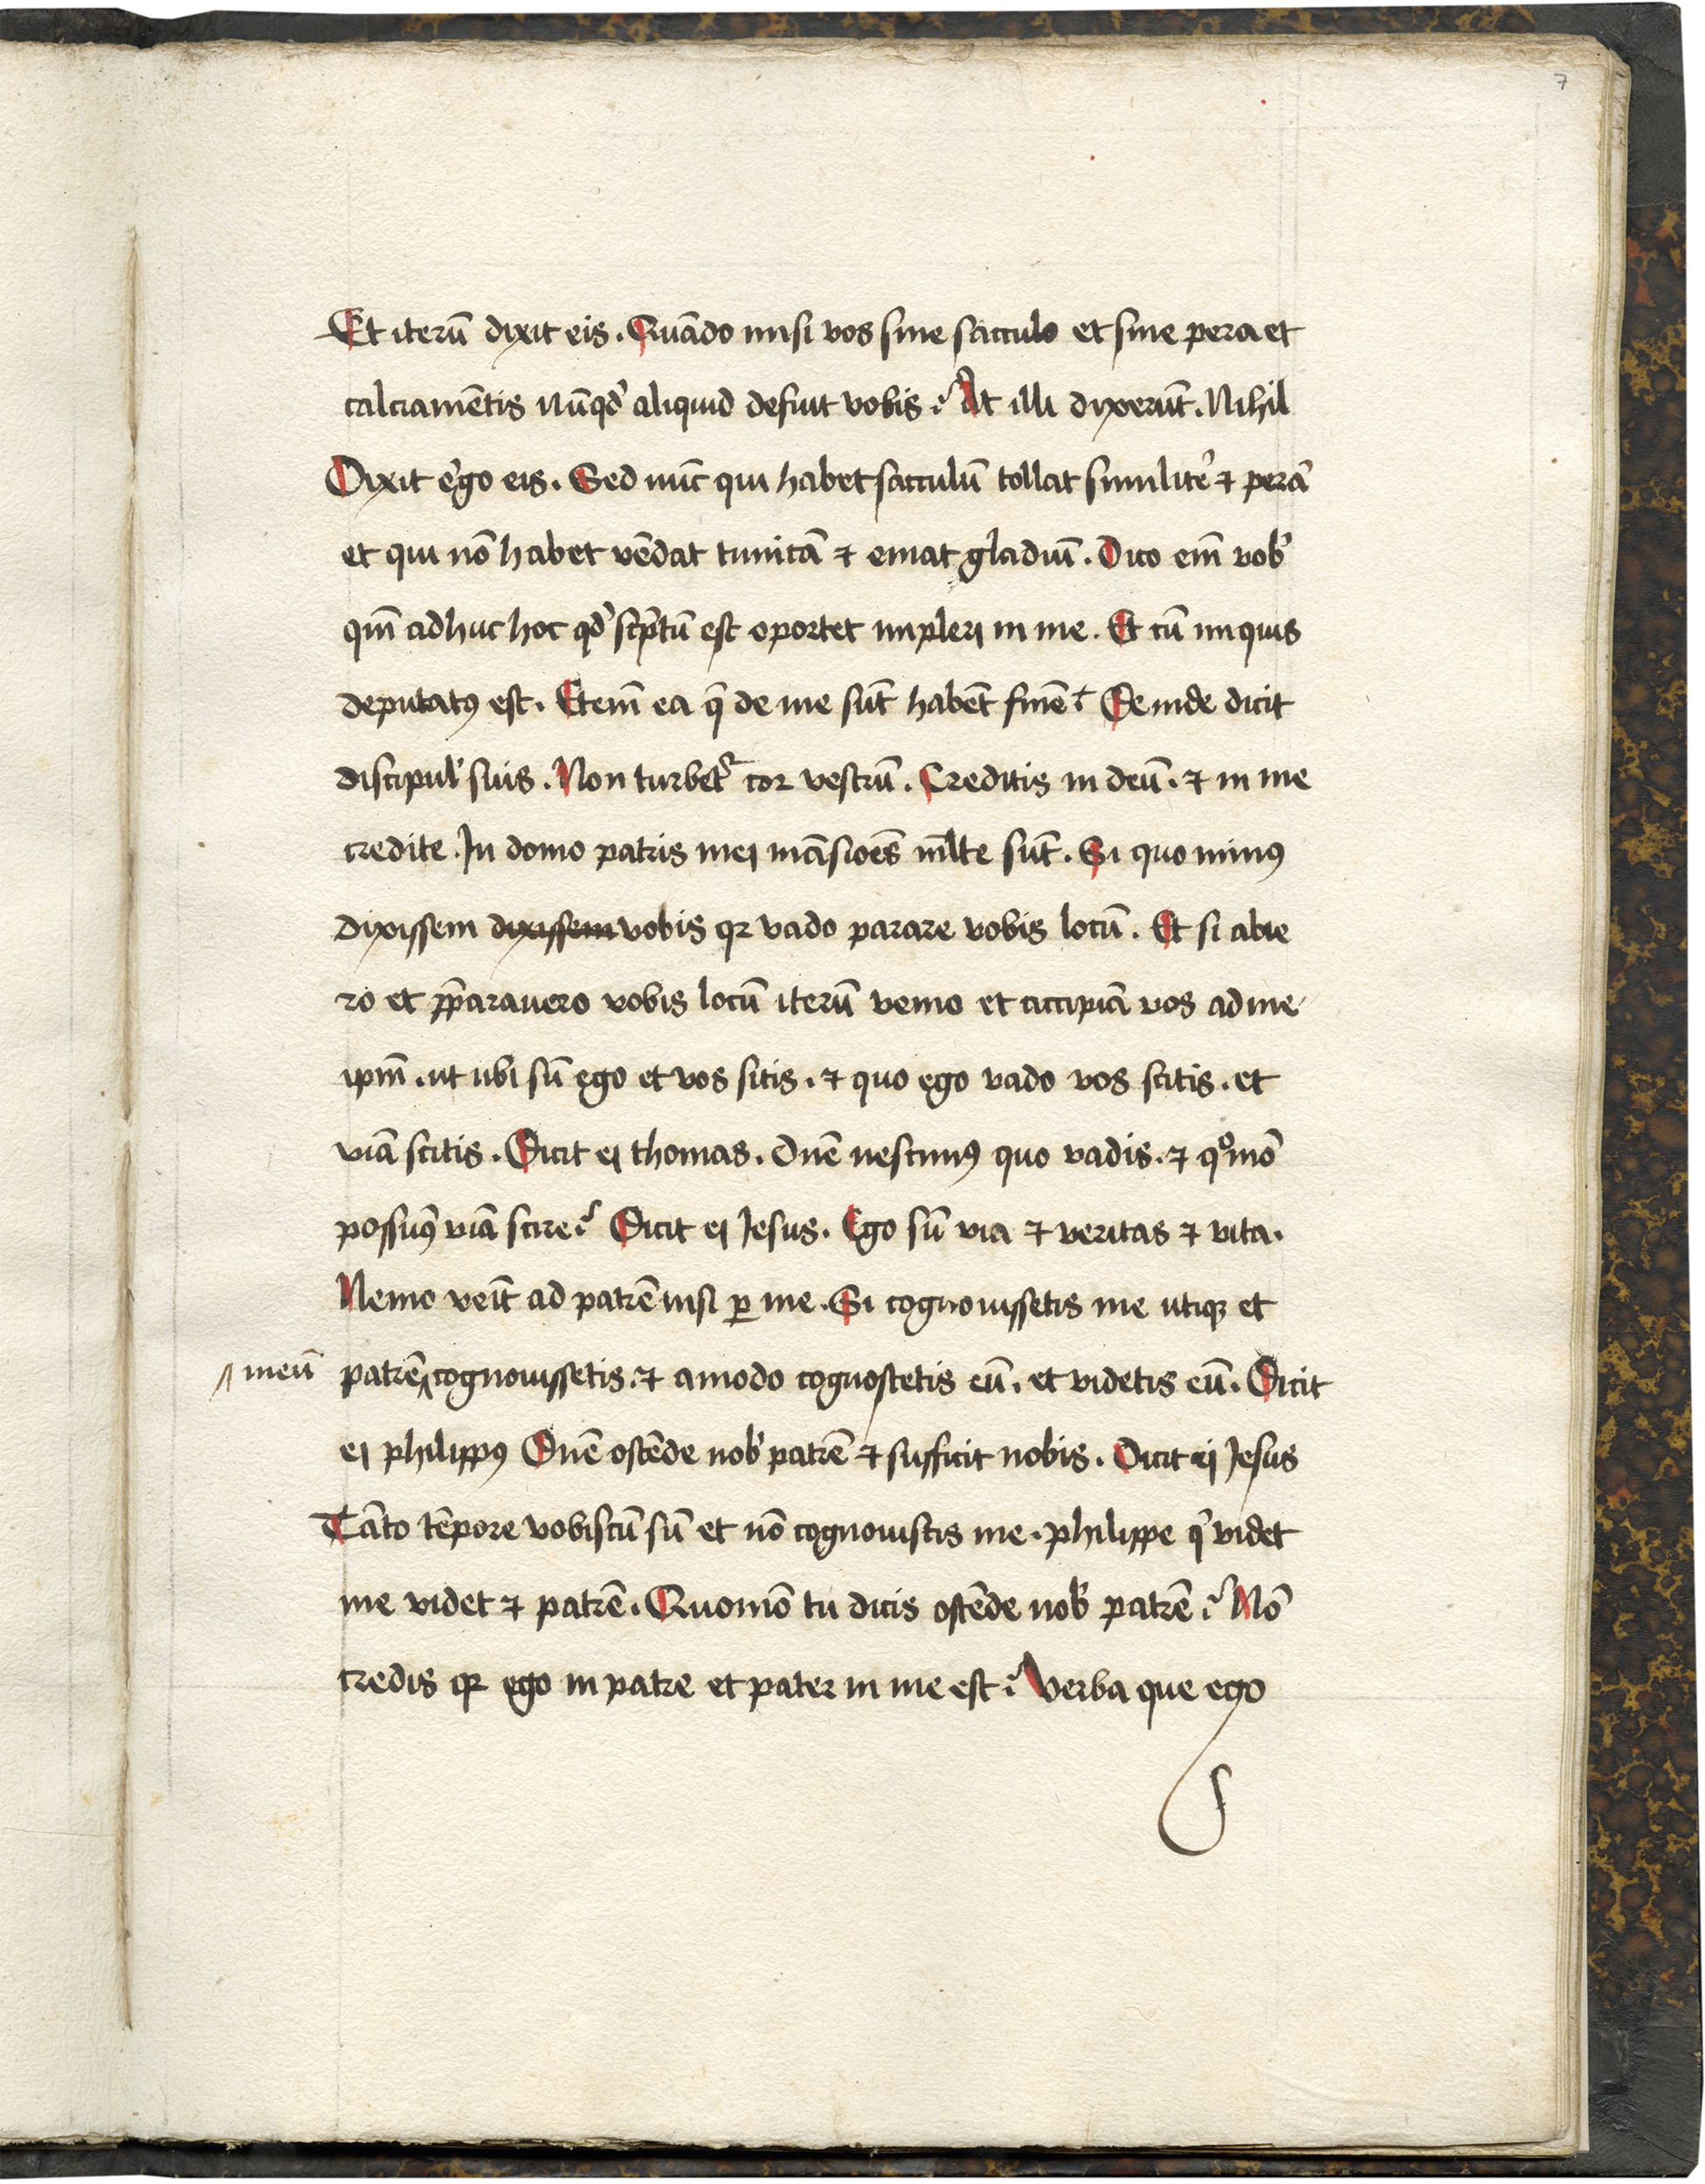 7
Et iterū dixit eis. Quādo misi vos sine sacculo et sine pera et
calciamētis nūqd' aliquid defuit vobis? At illi dixerūt. Nihil
Dixit e'go eis. Sed nūc qui habet sacculū tollat similite' ⁊ perā
et qui nō habet vēdat tunicā ⁊ emat gladiū. Dico em̄ vob'
qm̄ adhuc hoc qd' sc'ptū est oportet impleri in me. Et cū iniquis
deputatꝯ est. Etem̄ ea q̄ de me sūt habēt finē. Deinde dicit
discipul' suis. Non turbet᷑ cor vestrū. Creditis in deū. ⁊ in me
credite. In domo patris mei māsiōes ml̄te sūt. Si quo minꝯ
dixissem dixissem vobis qꝛ vado parare vobis locū. Et si abie
ro et p̄parauero vobis locū iterū venio et accipiā vos ad me
ipm̄. ut ubi sū ego et vos sitis. ⁊ quo ego vado vos scitis. et
viā scitis. Dicit ei thomas. Dn̄e nescimꝯ quo vadis. ⁊ qºmō
possumꝯ viā scire? Dicit ei Jesus. Ego sū via ⁊ veritas ⁊ vita.
Nemo veīt ad patrē nisi ꝑ me. Si cognouissetis me utiqꝫ et
meū patrē cognouissetis. ⁊ amodo cognoscetis eū. et videtis eū. Dicit
ei philippꝯ Dn̄e ostēde nob' patrē ⁊ sufficit nobis. Dicit ei Jesus
Tāto tēpore vobiscū sū et nō cognouistis me. philippe q' videt
me videt ⁊ patrē. Quomō tu dicis ostēde nob' patrē? Nō
credis qꝛ ego in patre et pater in me est? Verba que ego